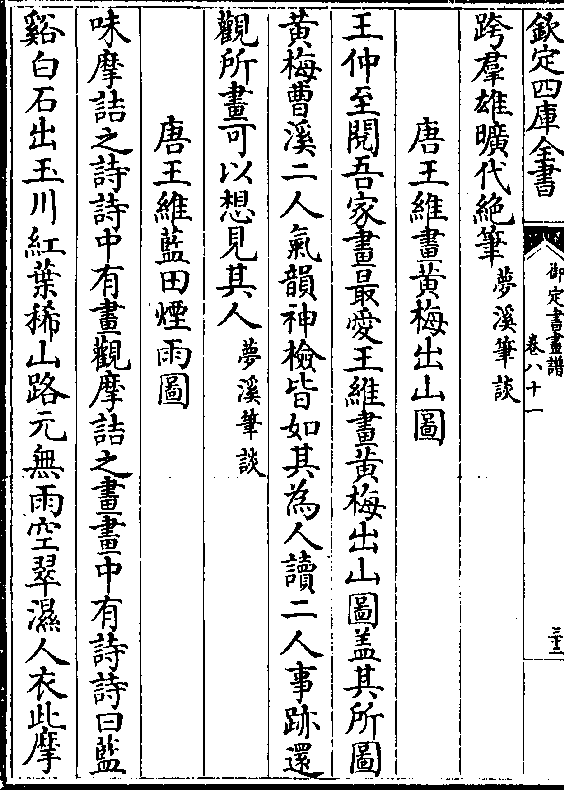 欽定四庫全書
御定書畫譜
卷八十一
三十三
跨羣雄曠代絶筆夢溪筆談
唐王維畫黄梅出山圖
王仲至閱吾家畫最愛王維畫黄梅出山圖盖其所圖
黄梅曹溪二人氣韻神檢皆如其為人讀二人事跡還
觀所畫可以想見其人夢溪筆談
唐王維藍田煙雨圖
味摩詰之詩詩中有畫觀摩詰之畫畫中有詩詩曰藍
谿白石出玉川紅葉稀山路元無雨空翠濕人衣此摩